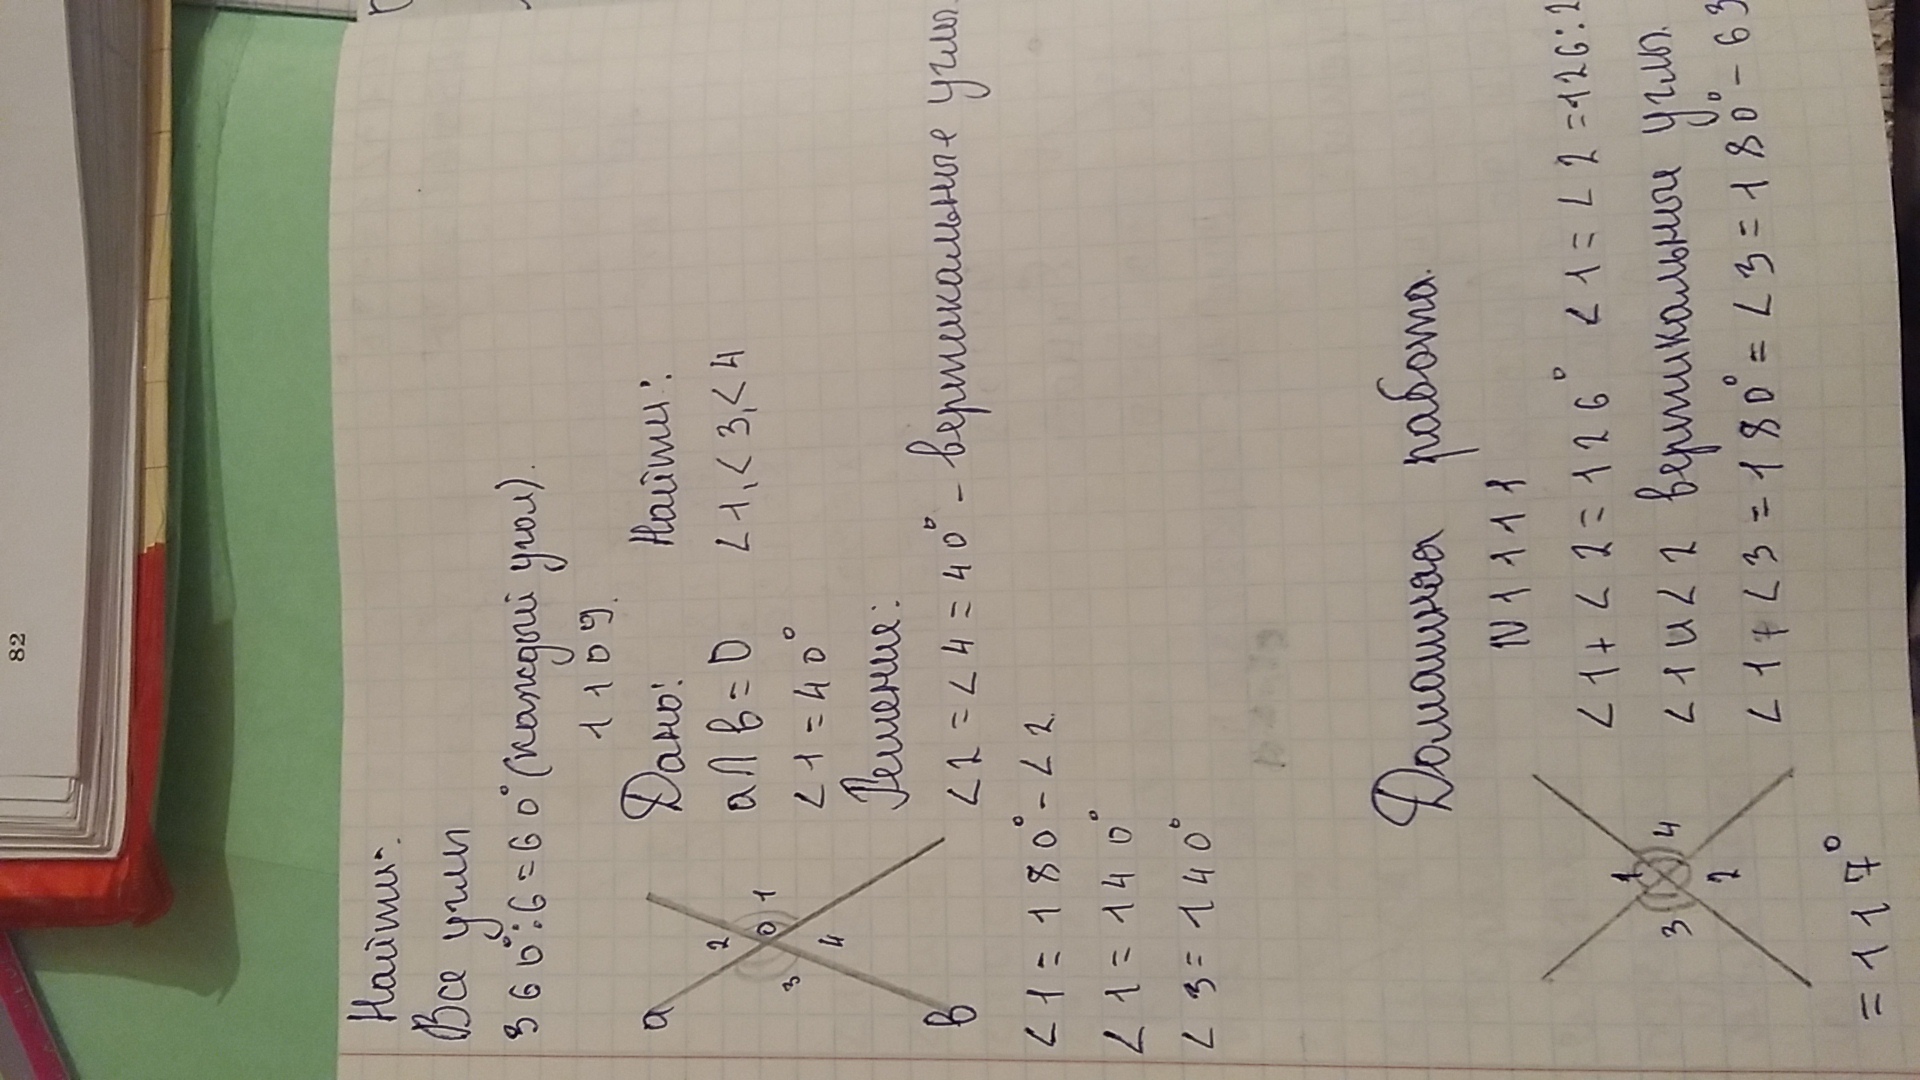 82
Найти:
Все углы
360°:6=60° (каждый угол).
1109.
Дано: Найти:
a∩b=O <1,<3,<4
<1=40°
Решение:
<2=<4=40° - вертикальные углы.
a
2 O 1
3 4
b
<1=180°-<2.
<1=140°
<3=140°
Домашняя работа.
N1111
<1+<2=126° <1=<2=126:2
<1и<2 вертикальные углы.
<1+<3=180°=<3=180°-63
1
3 4
2
=117°